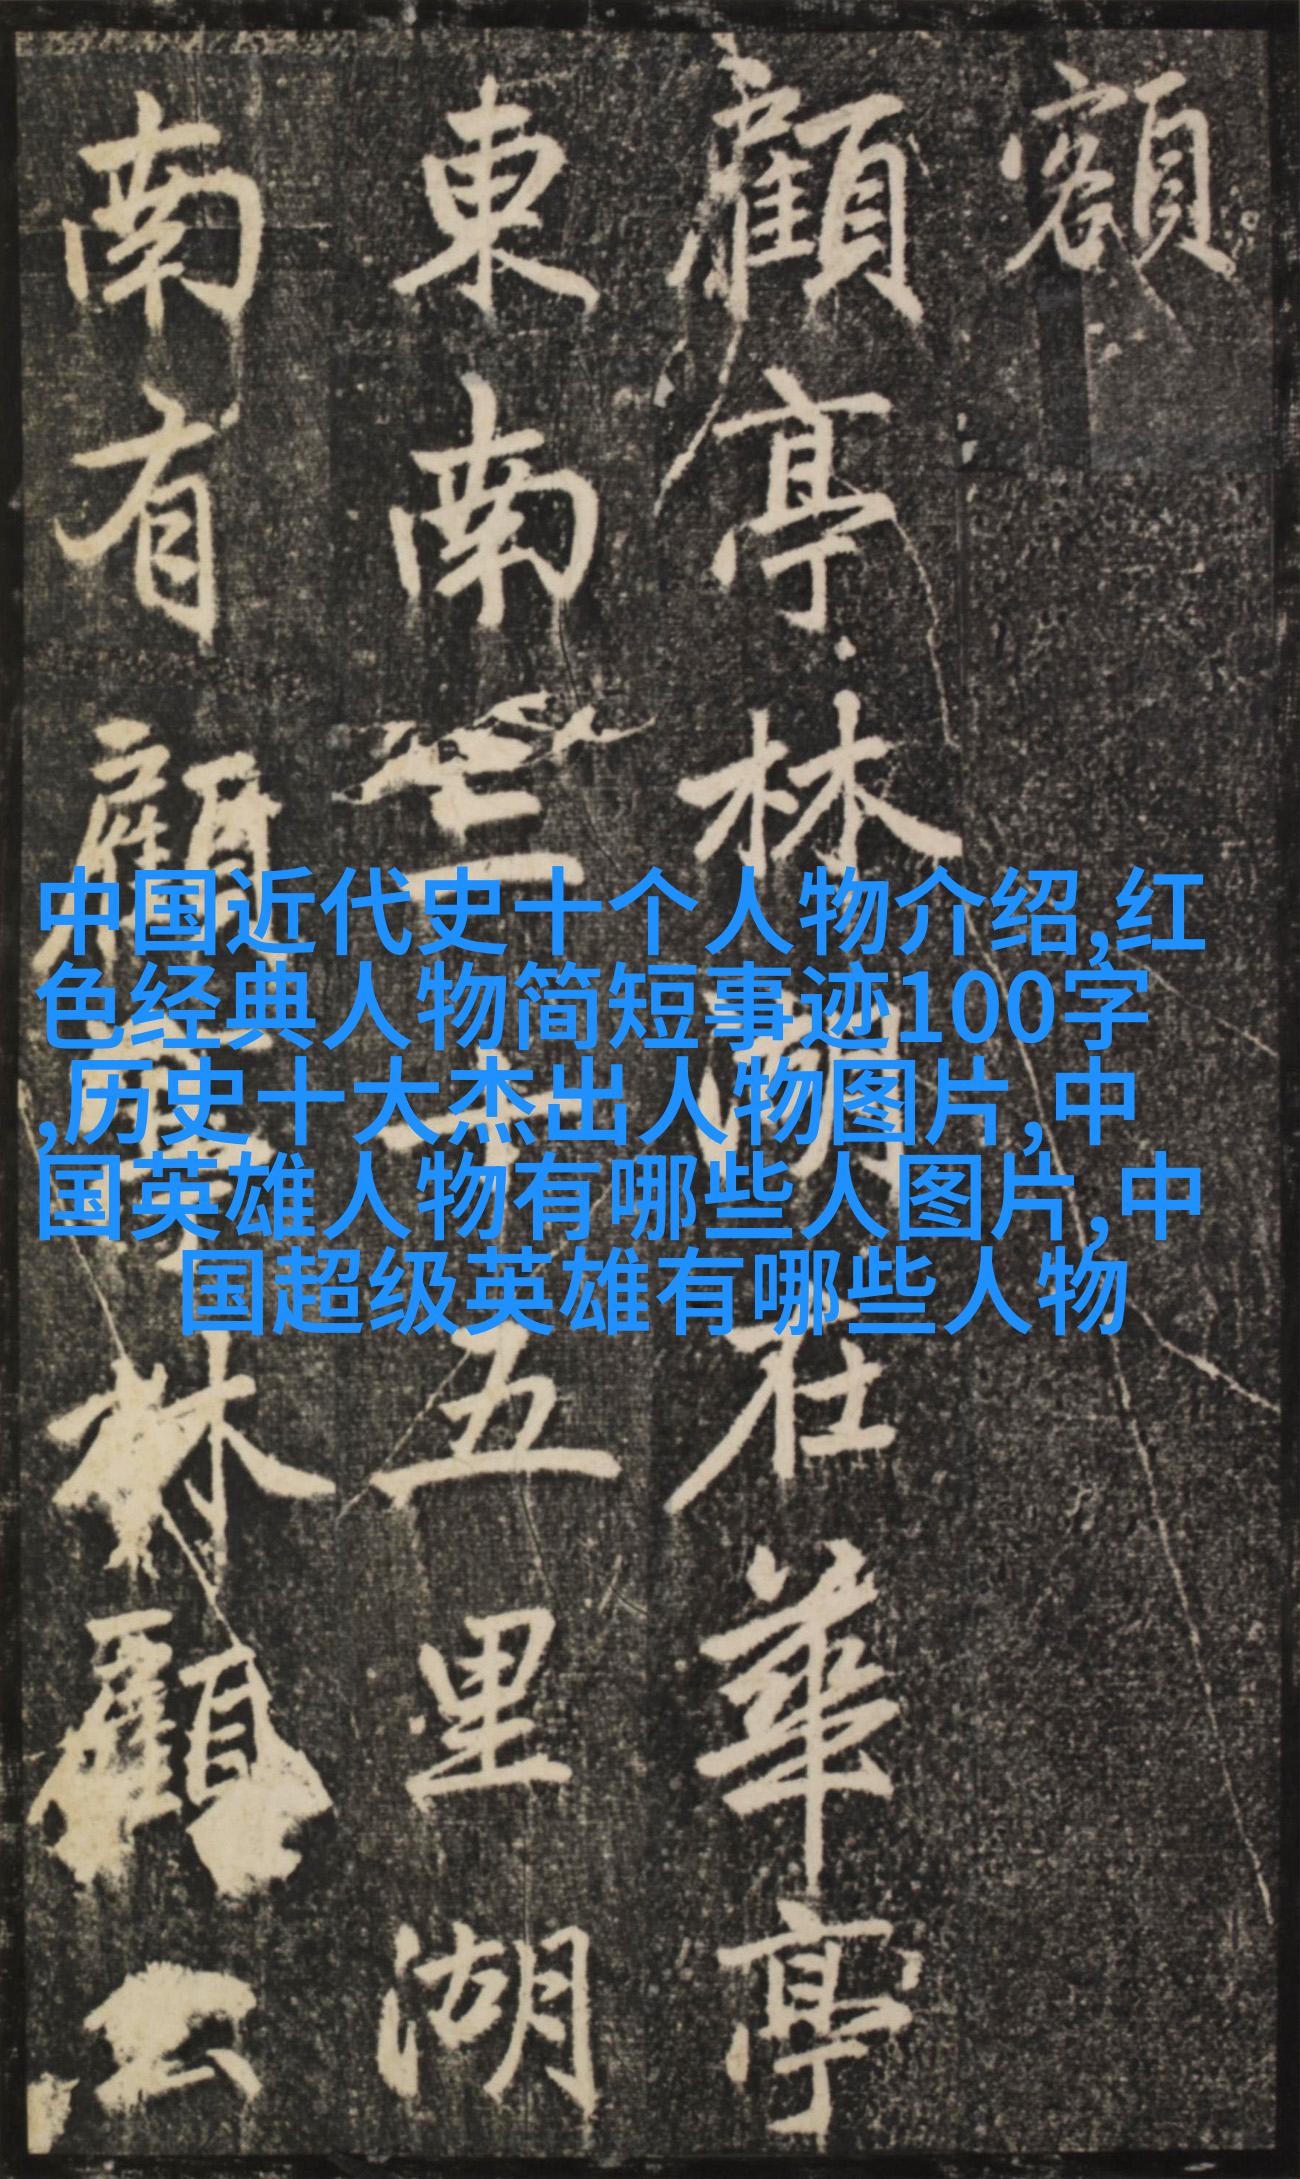 額
顧亭林湖在華亭
東南三十五里湖
南有顧亭林顧公
中国近代史十个人物介绍,红
色经典人物简短事迹100字
,历史十大杰出人物图片,中
国英雄人物有哪些人图片,中
国超级英雄有哪些人物